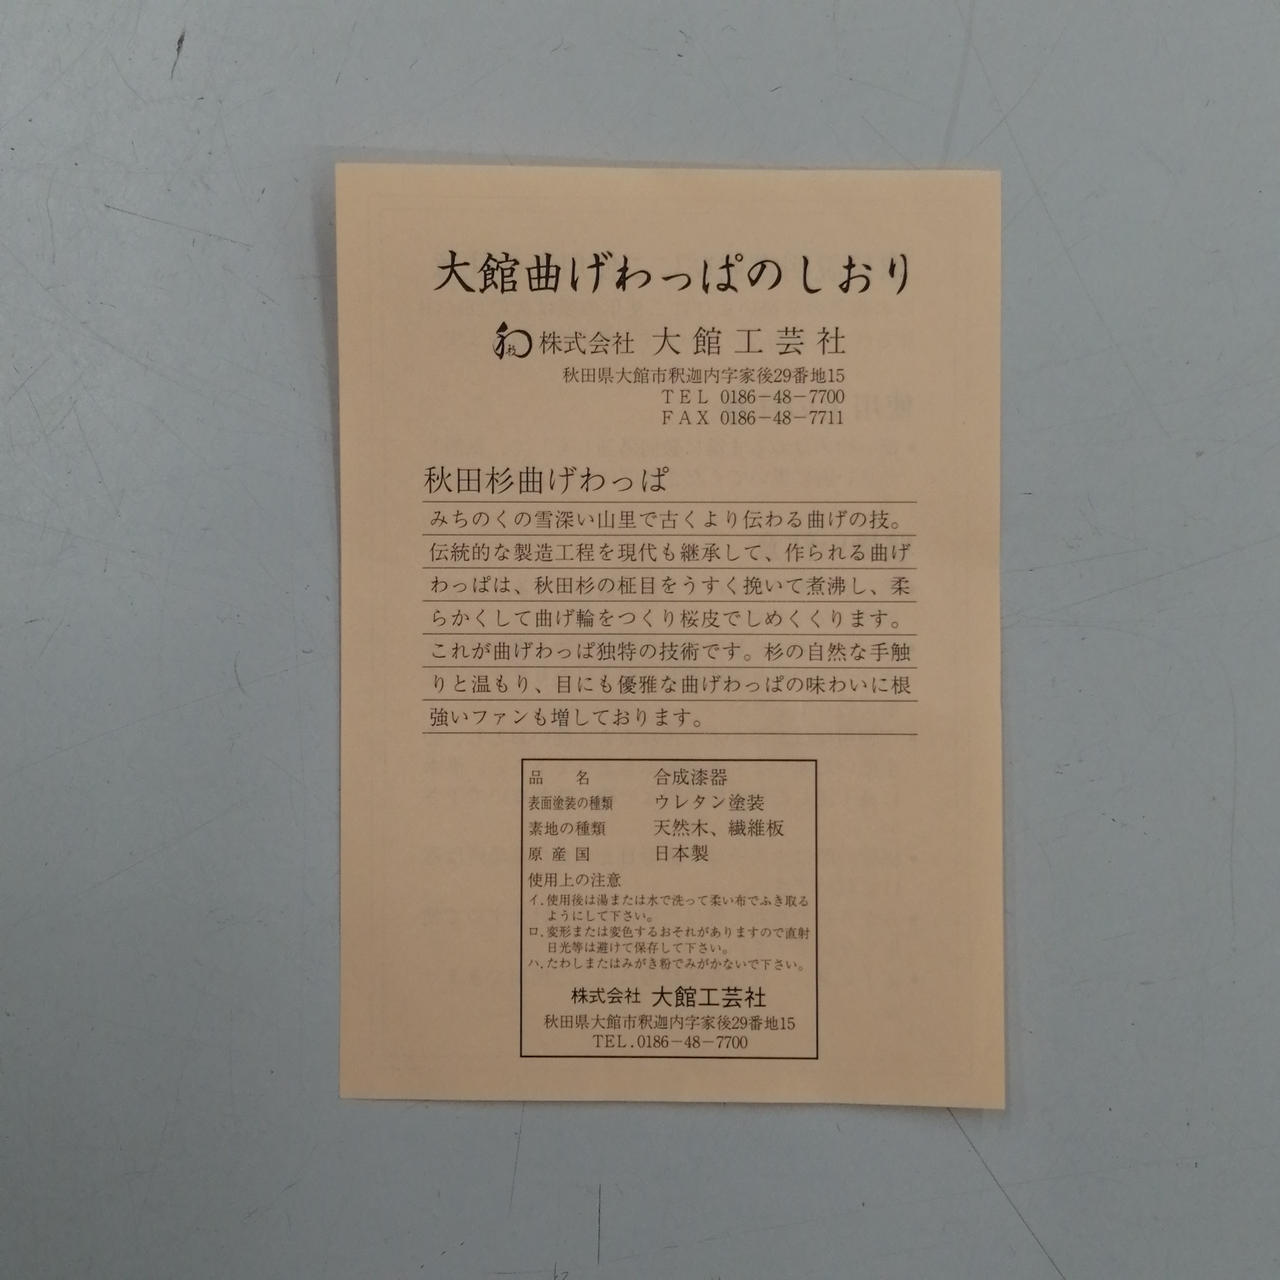 大館曲げわっぱのしおり
株式会社 大館工芸社
秋田県大館市釈迦内字家後29番地15
TEL 0186-48-7700
FAX 0186-48-7711
秋田杉曲げわっぱ
みちのくの雪深い山里で古くより伝わる曲げの技。
伝統的な製造工程を現代も継承して、作られる曲げ
わっぱは、秋田杉の柾目をうすく挽いて煮沸し、柔
らかくして曲げ輪をつくり桜皮でしめくくります。
これが曲げわっぱ独特の技術です。杉の自然な手触
りと温もり、目にも優雅な曲げわっぱの味わいに根
強いファンも増しております。
品名 合成漆器
表面塗装の種類 ウレタン塗装
素地の種類 天然木、繊維板
原産国 日本製
使用上の注意
イ.使用後は湯または水で洗って柔い布でふき取る
ようにして下さい。
ロ.変形または変色するおそれがありますので直射
日光等は避けて保存して下さい。
ハ.たわしまたはみがき粉でみがかないで下さい。
株式会社 大館工芸社
秋田県大館市釈迦内字家後29番地15
TEL.0186-48-7700